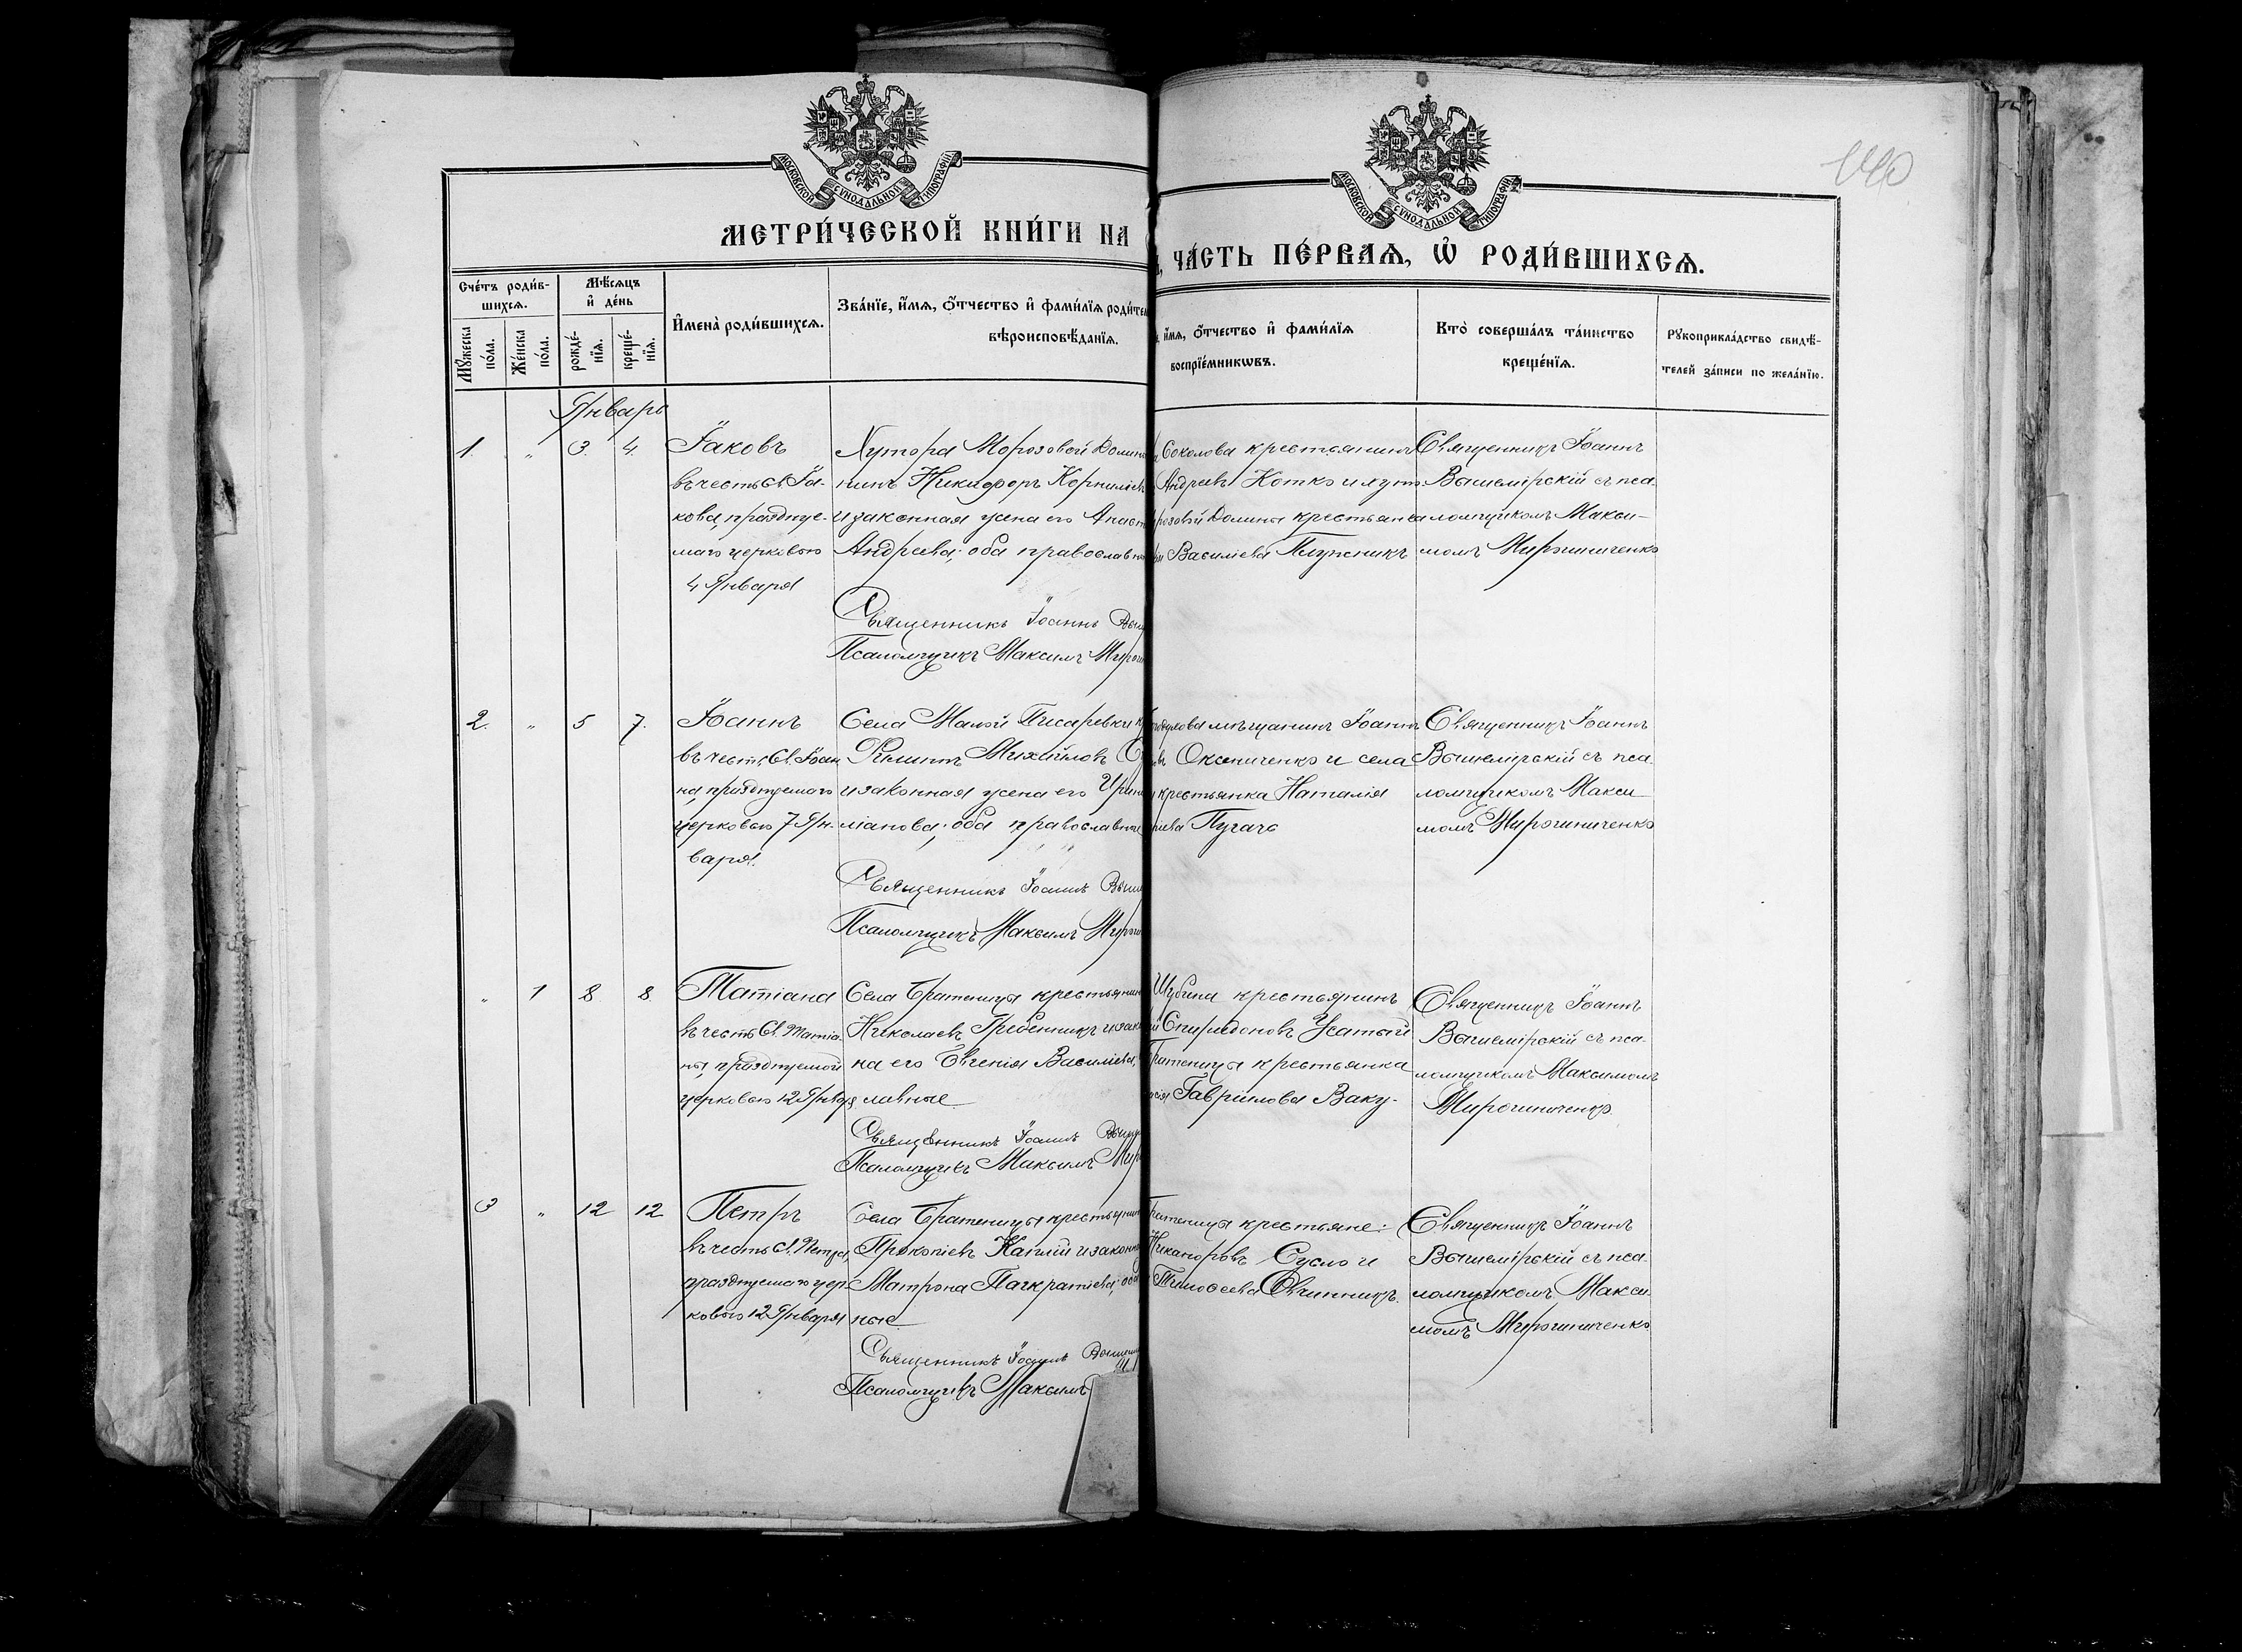 140
МОСКОВСКОЙ СѴНОДАЛЬНОЙ ТИПОГРАФІИ
МОСКОВСКОЙ СѴНОДАЛЬНОЙ ТИПОГРАФІИ
МЕТРИ́ЧЕСКОЙ КНИ́ГИ НА
ЧА́СТЬ ПЕ́РВАѦ, Ѡ҆ РОДИ́ВШИХСѦ.
Сче́тъ роди́в-
шихсѧ.
Мꙋ́жеска по́ла.
Же́нска по́ла.
Мѣ́сѧцъ
и҆ де́нь
рожде́-нїѧ.
креще́-нїѧ.
И҆мена̀ роди́вшихсѧ.
Зва́нїе, и҆́мѧ, ѻ҆́тчество и҆ фами́лїѧ роди́те
вѣроисповѣ́данїѧ.
и҆́мѧ, ѻ҆́тчество и҆ фами́лїѧ
воспрїе́мникѡвъ.
Кто̀ соверша́лъ та́инство
креще́нїѧ.
Рꙋкоприкла́дство свидѣ́-
телей за́писи по жела́нїю.
Январь
1. " 3. 4.
Іаковъ
въ честь Св. Іа-
кова, праздуе-
маго церковью
4 Января
Хутора Морозовой Долин
нинъ Никифоръ Корниліев
и законная жена его Анаст
Андреева; оба православн
Священникъ Іоаннъ Выш
Псаломщикъ Максимъ Миро
Соколова крестьянинъ
Андреев Котко и хуто
розовой Долины крестьянка
Василіева Плужникъ
Священникъ Іоаннъ
Вышемірскій съ пса-
ломщикомъ Макси-
момъ Мирошниченко
2. " 5 7.
Іоаннъ
въ честь Св. Іоан
на, празднуемаго
церковью 7 Ян-
варя.
Села Малой Писаревки к
Филиппъ Михайловъ
и законная жена его Ирин
ліанова; оба православные
Священникъ Іоаннъ Выш
Псаломщикъ Максимъ Миро
мѣщанинъ Іоаннъ
Оксениченко и села
крестьянка Наталія
Пугачъ
Священникъ Іоаннъ
Вышемірскій съ пса-
ломщикомъ Макси
момъ Мирошниченко
" 1 8 8
Татіана
въ честь Св. Татіа-
ны, празднуемой
церковью 12 Января
Села Братеницы крестьянин
Николаевъ Гребенникъ и зак
на его Евгенія Василіева,
славные
Священникъ Іоаннъ Выш
Псаломщикъ Максимъ Мир
Шубина крестьянинъ
Спиридоновъ Усатый
Братеницы крестьянка
Гавріилова Ваку-
Священникъ Іоаннъ
Вышемірскій съ пса-
ломщикомъ Максимомъ
Мирошниченко
3 " 12 12
Петръ
въ честь Св. Петра,
празднуемаго цер-
ковью 12 Января
Села Братеницы крестьянин
Прокопіевъ Каплій и законн
Матрона Панкратіева; оба
ные
Священникъ Іоаннъ Вышем
Псаломщикъ Максимъ
Братеницы крестьяне:
Никаноровъ Сусло и
Тимоѳеева Овчинникъ.
Священникъ Іоаннъ
Вышемірскій съ пса-
ломщикомъ Макси
момъ Мирошниченко